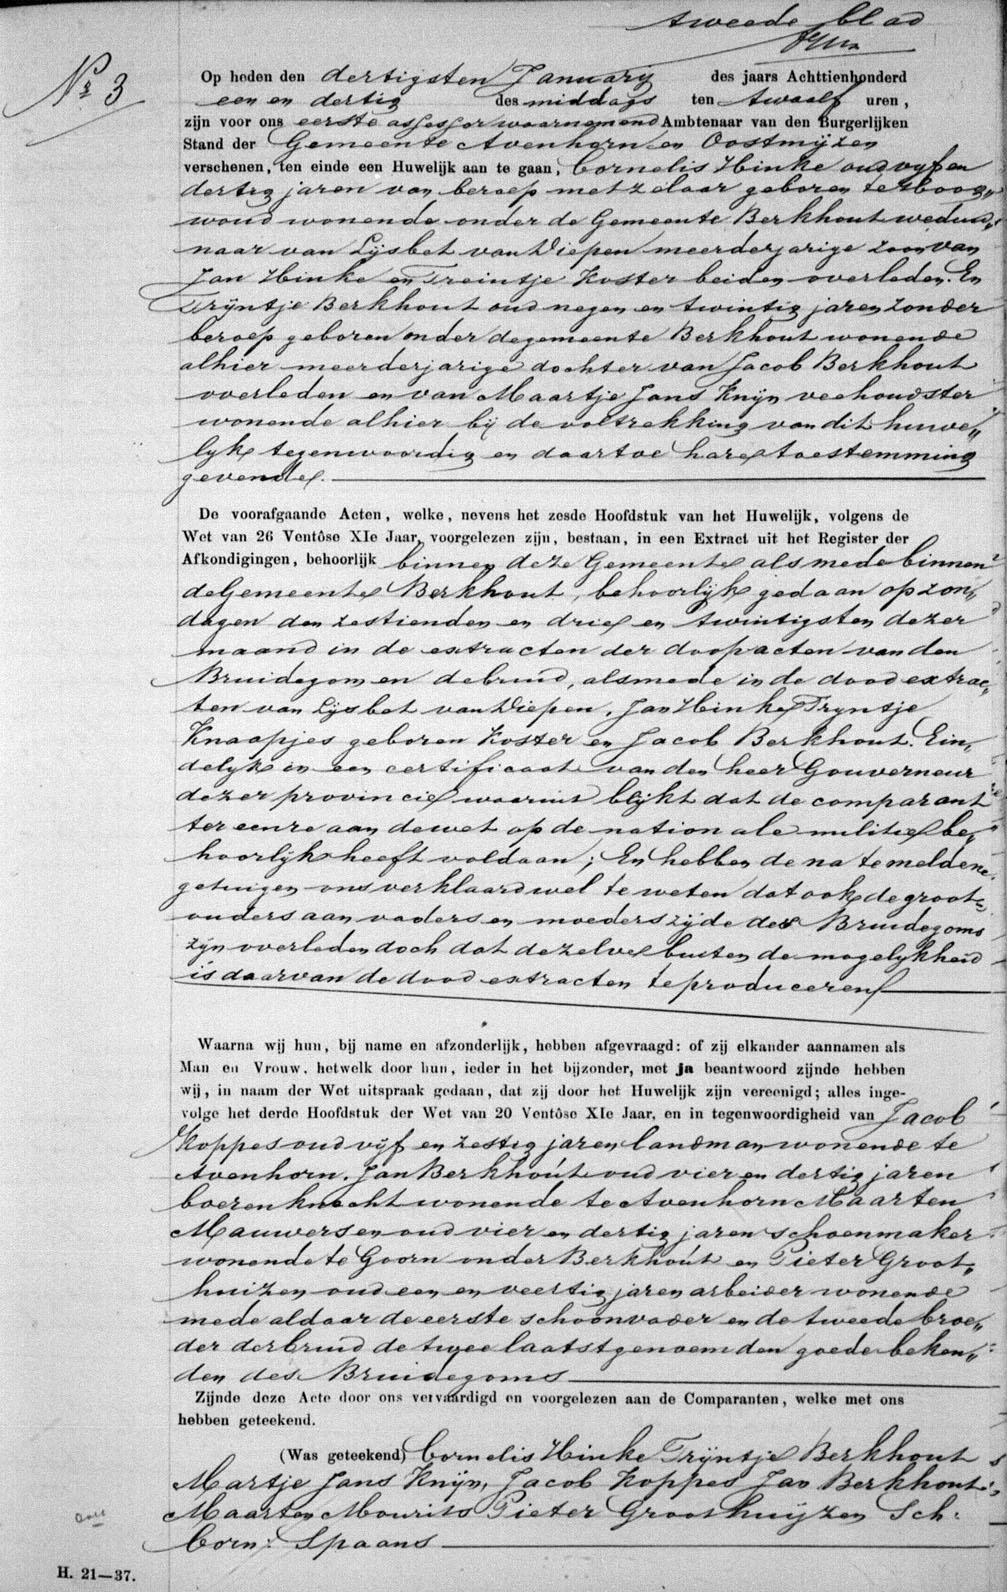 tweede blad
No 3
Op heden den dertigsten January des jaars Achttienhonderd
een en dertig des middags ten twaalf uren,
zijn voor ons eerste assessor waarnemend Ambtenaar van den Burgerlijken
Stand der Gemeente Avenhorn en Oostmijzen
verschenen, ten einde een Huwelijk aan te gaan, Cornelis Hinke oud vyf en
dertig jaren van beroep metzelaar geboren te Hoog„
woud wonende onder de Gemeente Berkhout weduw„
naar van Lijsbet van Diepen meerderjarige zoon van
Jan Hinke en Treintje Koster beiden overleden. En
Trÿntje Berkhout oud negen en twintig jaren zonder
beroep geboren onder de gemeente Berkhout wonende
alhier meerderjarige dochter van Jacob Berkhout
overleden en van Maartje Jans Knÿn veehoudster
wonende alhier bij de voltrekking van dit huwe„
lyk tegenwoordig en daartoe hare toestemming
gevende.
De voorafgaande Acten, welke, nevens het zesde Hoofdstuk van het Huwelijk, volgens de
Wet van 26 Ventôse XIe Jaar, voorgelezen zijn, bestaan, in een Extract uit het Register der
Afkondigingen, behoorlijk binnen deze Gemeente alsmede binnen
de Gemeente Berkhout, behoorlijk gedaan op zon„
dagen den zestienden en drie en twintigsten dezer
maand in de extracten der doopacten van den
Bruidegom en de bruid, alsmede in de dood extrac„
ten van Lijsbet van Diepen, Jan Hinke Tryntje
Knaapjes geboren Koster en Jacob Berkhout. Ein„
delyk in een certificaat van den heer Gouverneur
dezer provincie waaruit blijkt dat de comparant
ter eenre aan de wet op de nationale militie be„
hoorlyk heeft voldaan; En hebben de na te melden
getuigen ons verklaard wel te weten dat ook de groot„
ouders aan vaders en moeders zijde des Bruidegoms
zijn overleden doch dat dezelve buiten de mogelykheid
is daarvan de dood extracten te produceren
Waarna wij hun, bij name en afzonderlijk, hebben afgevraagd: of zij elkander aannamen als
Man en Vrouw, hetwelk door hun, ieder in het bijzonder, met ja beantwoord zijnde hebben
wij, in naam der Wet uitspraak gedaan, dat zij door het Huwelijk zijn vereenigd; alles inge-
volge het derde Hoofdstuk der Wet van 20 Ventôse XIe Jaar, en in tegenwoordigheid van Jacob
Koppes oud vijf en zestig jaren landman wonende te
Avenhorn. Jan Berkhout oud vier en dertig jaren
boerenknecht wonende te Avenhorn Maarten
Mauwersen oud vier en dertig jaren schoenmaker
wonende te Goorn onder Berkhout en Pieter Groot„
huizen oud een en veertig jaren arbeider wonende
mede aldaar de eerste schoonvader en de tweede broe„
der der bruid de twee laatstgenoemden goede beken„
den des Bruidegoms
Zijnde deze Acte door ons vervaardigd en voorgelezen aan de Comparanten, welke met ons
hebben geteekend.
(Was geteekend) Cornelis Hinke Trÿntje Berkhout
Martje Jans Knÿn, Jacob Koppes Jan Berkhout
Maarten Mourits Pieter Groothuÿzen Sch:
Corn: Spaans
H. 21—37.